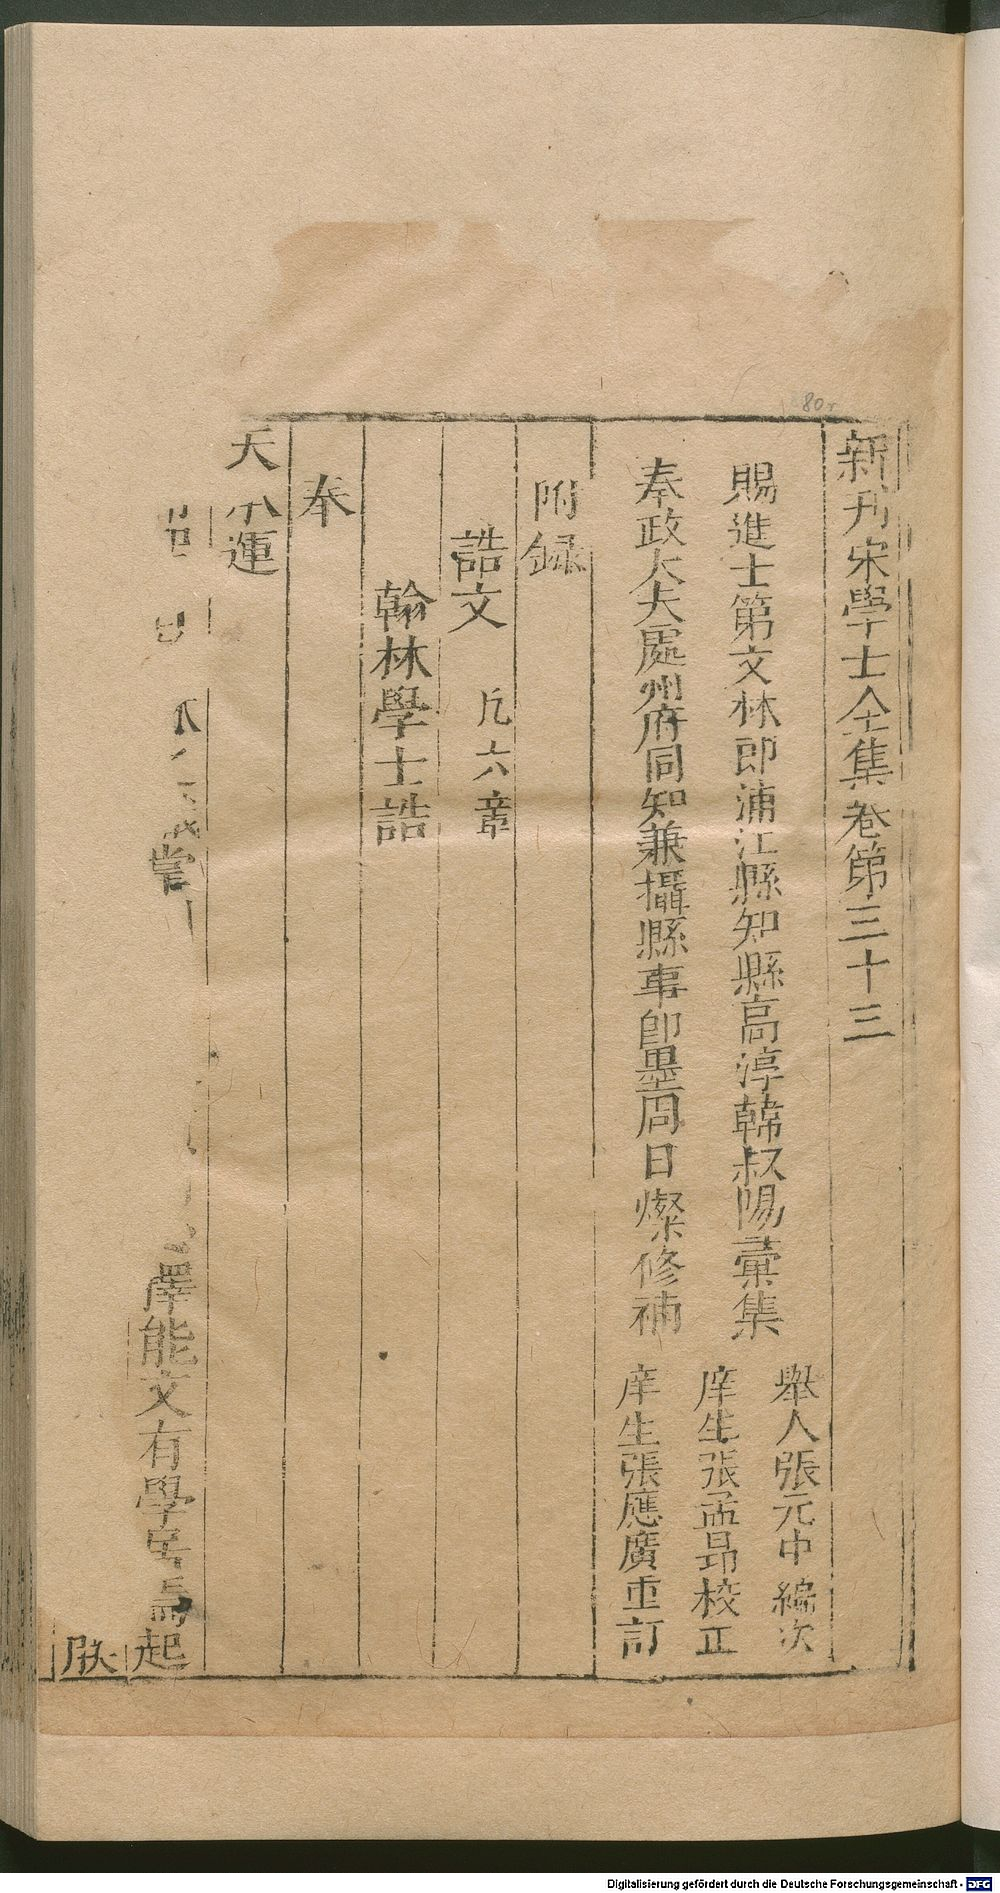 新刋宋學士全集卷第三十三
賜進士第文林郎浦江縣知縣高淳韓叔陽彙集
奉政大夫處州府同知兼攝縣事即墨周日燦修補
舉人張元中編次
庠生張孟昂校正
庠生張應廣重訂
附録
誥文 凡六章
翰林學士誥
奉
天承運
澤能文有學
起
朕
80r
Digitalisierung gefördert durch die Deutsche Forschungsgemeinschaft - DFG